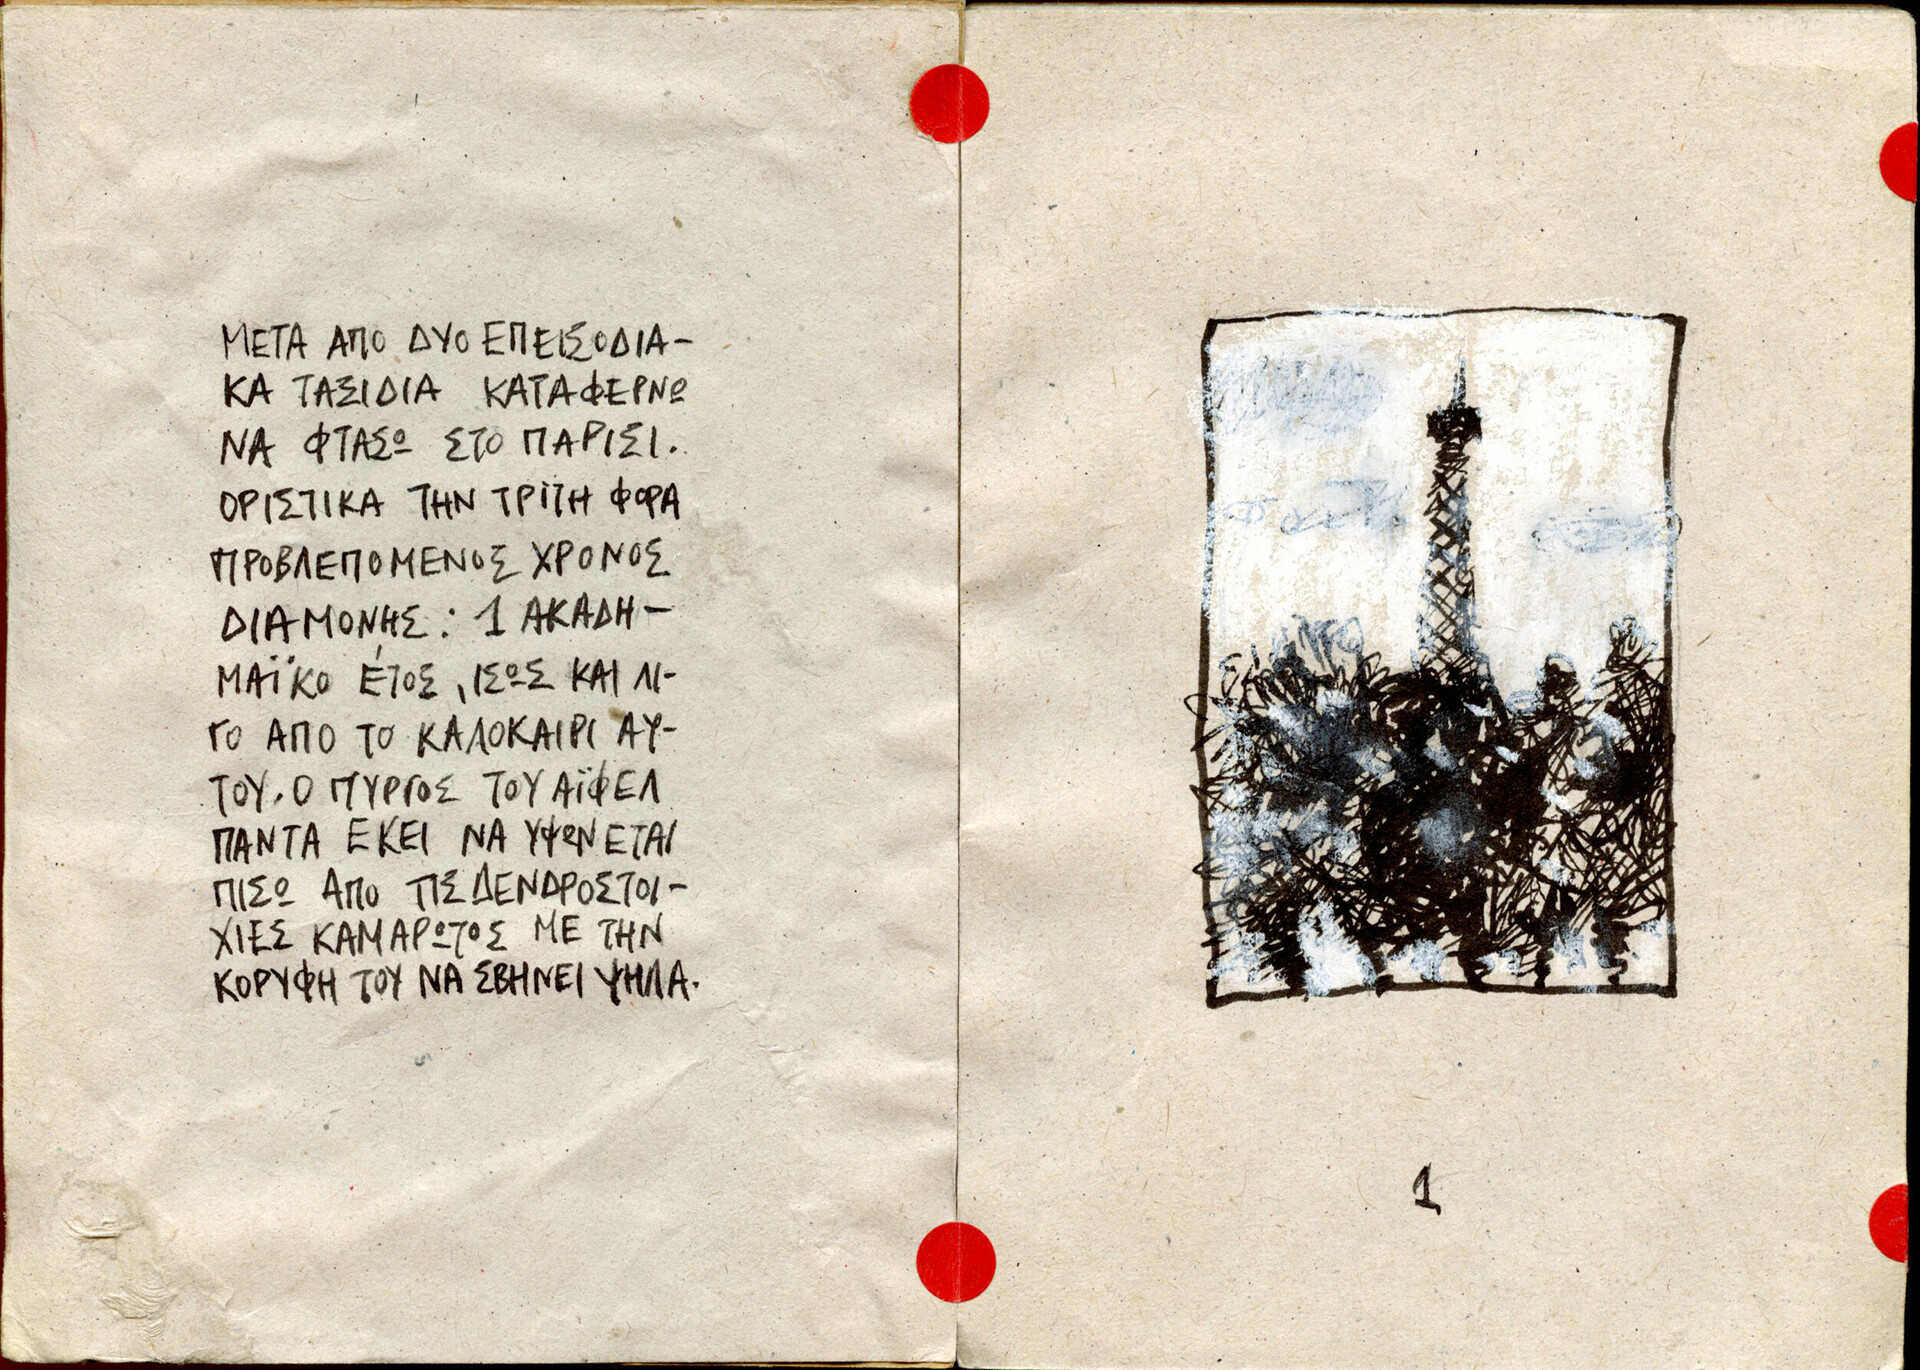 ΜΕΤΑ ΑΠΟ ΔΥΟ ΕΠΕΙΣΟΔΙΑ-
ΚΑ ΤΑΞΙΔΙΑ ΚΑΤΑΦΕΡΝΩ
ΝΑ ΦΤΑΣΩ ΣΤΟ ΠΑΡΙΣΙ.
ΟΡΙΣΤΙΚΑ ΤΗΝ ΤΡΙΤΗ ΦΟΡΑ
ΠΡΟΒΛΕΠΟΜΕΝΟΣ ΧΡΟΝΟΣ
ΔΙΑΜΟΝΗΣ: 1 ΑΚΑΔΗ-
ΜΑΪΚΟ ΈΤΟΣ, ΙΣΩΣ ΚΑΙ ΛΙ-
ΓΟ ΑΠΟ ΤΟ ΚΑΛΟΚΑΙΡΙ ΑΥ-
ΤΟΥ. Ο ΠΥΡΓΟΣ ΤΟΥ ΑΪΦΕΛ
ΠΑΝΤΑ ΕΚΕΙ ΝΑ ΥΨΩΝΕΤΑΙ
ΠΙΣΩ ΑΠΟ ΤΙΣ ΔΕΝΔΡΟΣΤΟΙ-
ΧΙΕΣ ΚΑΜΑΡΩΤΟΣ ΜΕ ΤΗΝ
ΚΟΡΥΦΗ ΤΟΥ ΝΑ ΣΒΗΝΕΙ ΨΗΛΑ.
1